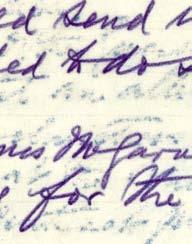 ed send
ed to do s
mes McGarv
for the